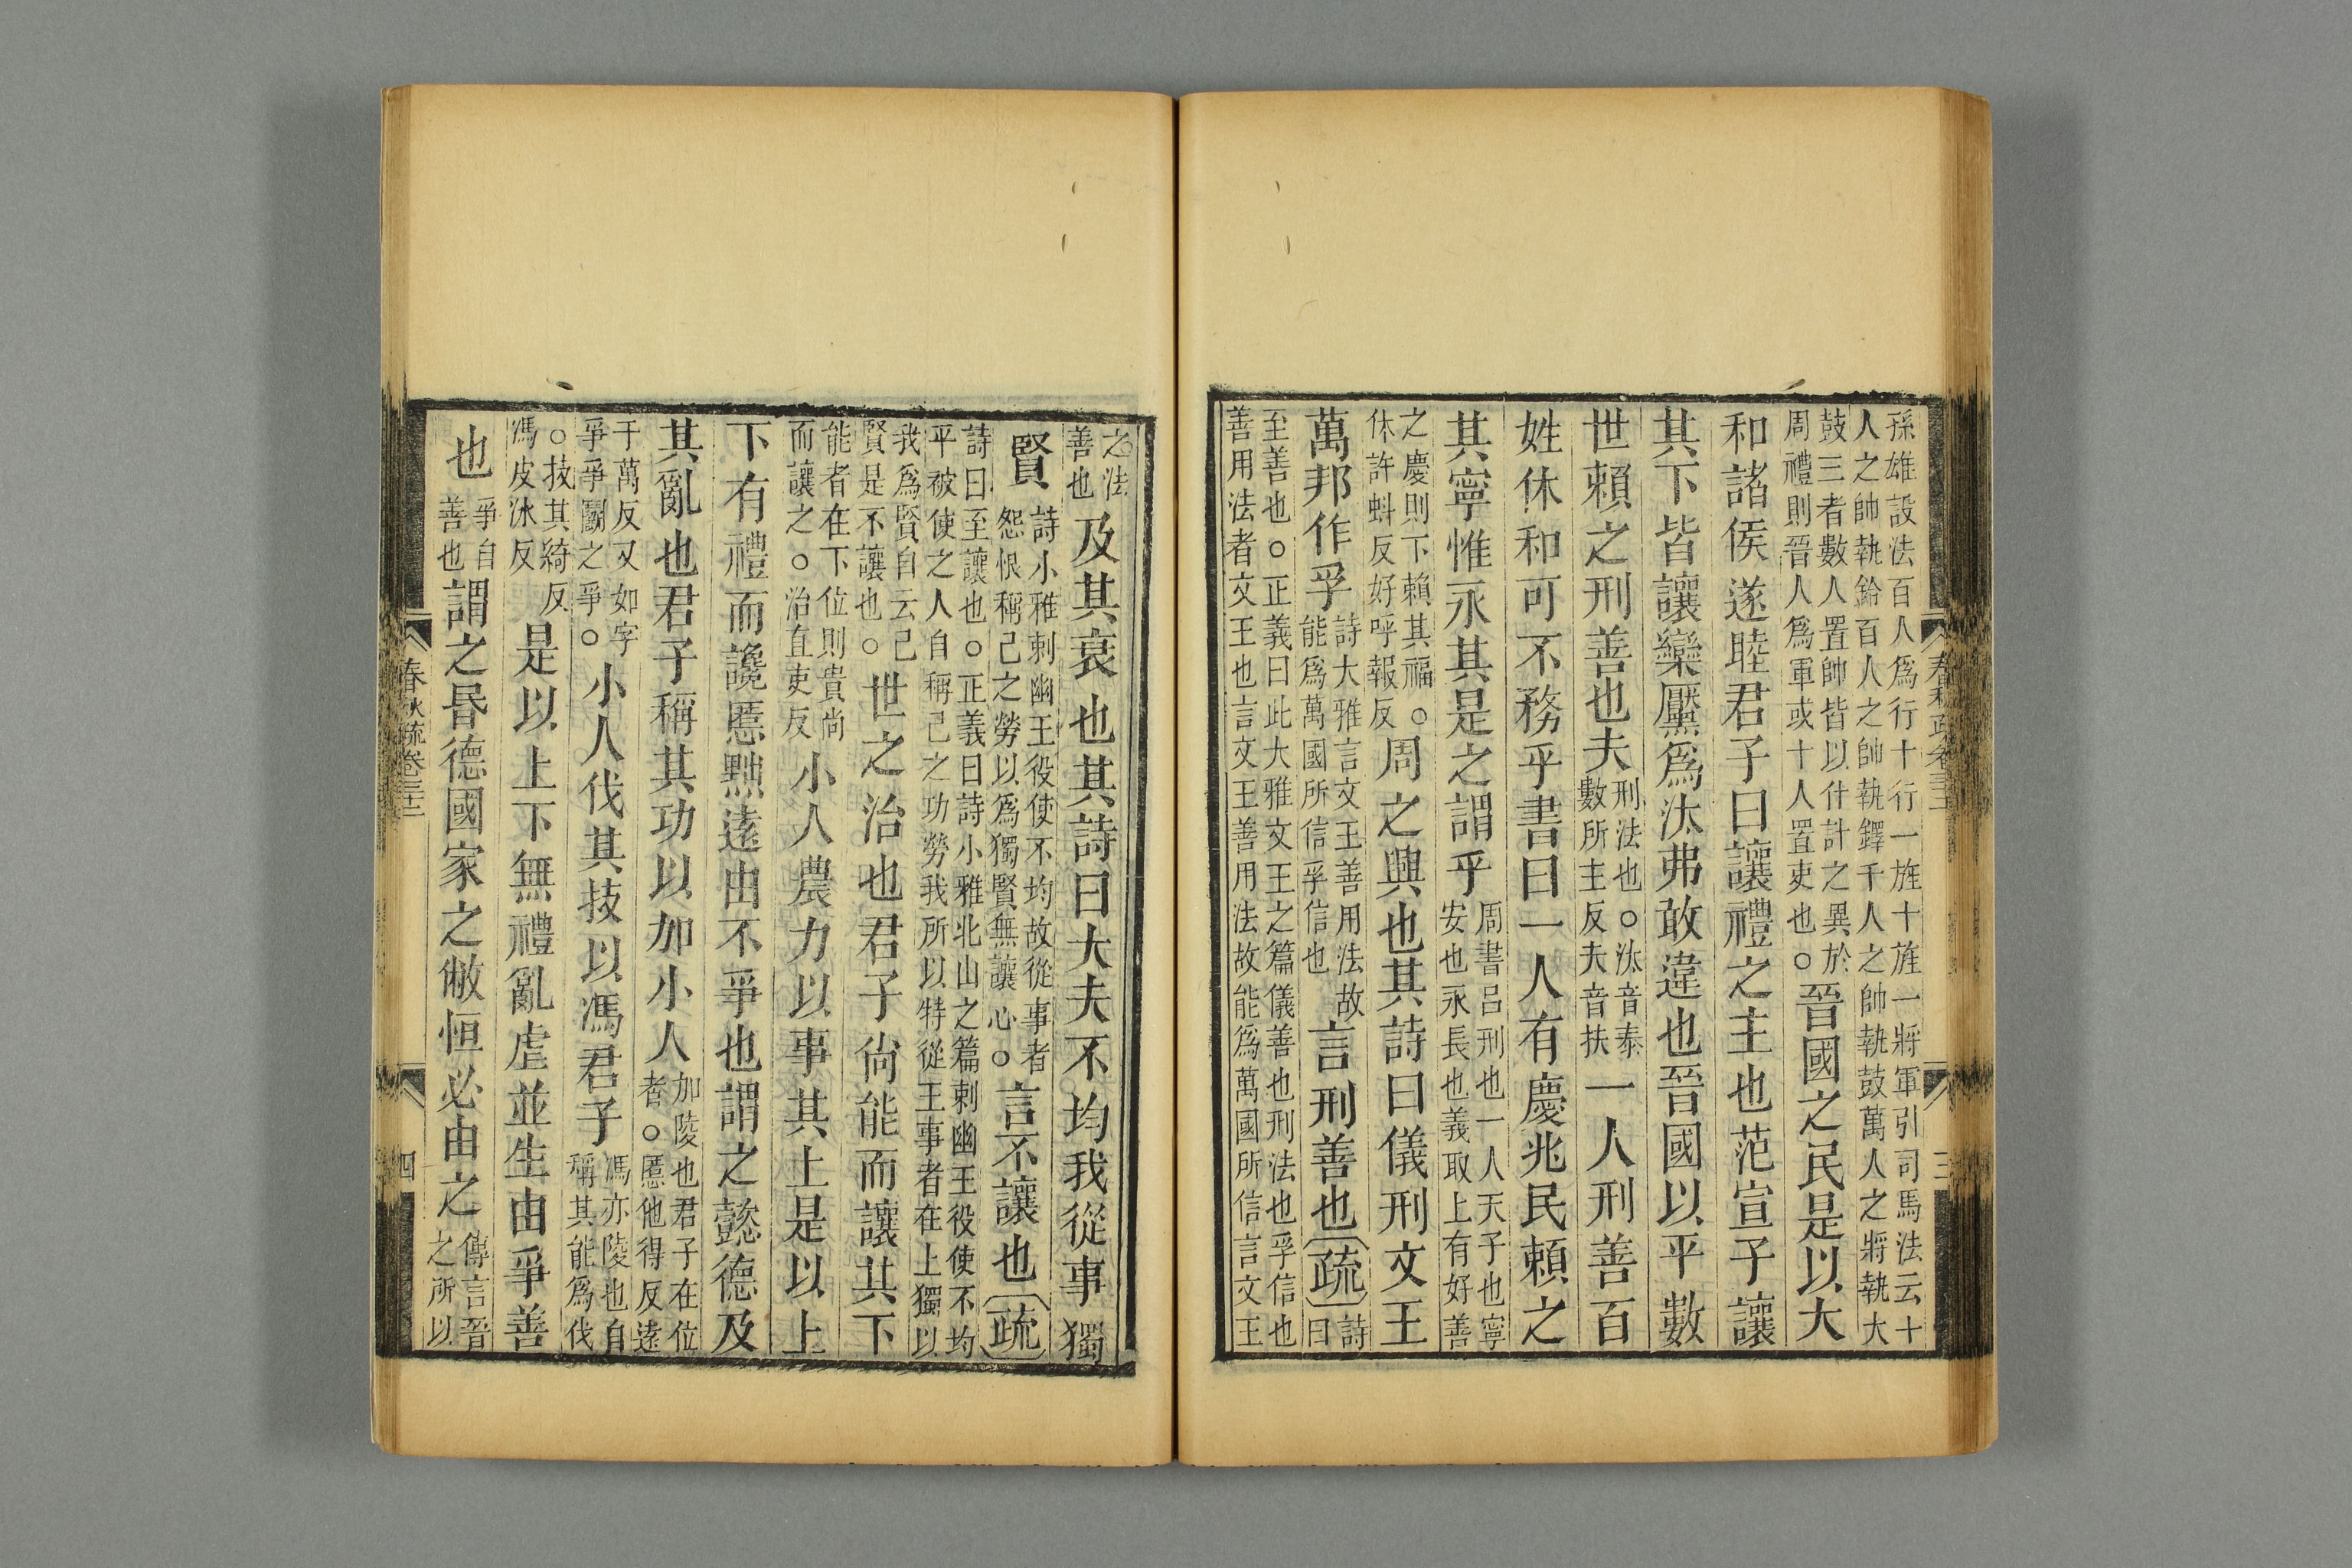 孫雄設法百人爲行十行一旌十旌一將軍引司馬法云十
人之帥執鈴百人之帥執鐸千人之帥執鼓萬人之將執大
鼓三者數人置帥皆以什計之異於
周禮則晉人爲軍或十人置吏也○晉國之民是以大
和諸侯遂睦君子曰讓禮之主也范宣子讓
其下皆讓欒黶爲汰弗敢違也晉國以平數
世賴之刑善也夫刑法也○汰音泰
數所主反夫音扶一人刑善百
姓休和可不務乎書曰一人有慶兆民賴之
其寧惟永其是之謂乎周書呂刑也一人天子也寧
安也永長也義取上有好善
之慶則下賴其福○
休許蚪反好呼報反周之興也其詩曰儀刑文王
萬邦作孚詩大雅言文王善用法故
能爲萬國所信孚信也言刑善也疏詩
曰
至善也○正義曰此大雅文王之篇儀善也刑法也孚信也
善用法者文王也言文王善用法故能爲萬國所信言文王
之法
善也及其衰也其詩曰大夫不均我從事獨
賢詩小雅刺幽王役使不均故從事者
怨恨稱己之勞以爲獨賢無讓心○言不讓也疏
詩曰至讓也○正義曰詩小雅北山之篇刺幽王役使不均
平被使之人自稱己之功勞我所以特從王事者在上獨以
我爲賢自云己
賢是不讓也○世之治也君子尙能而讓其下
能者在下位則貴尚
而讓之○治直吏反小人農力以事其上是以上
下有禮而讒慝黜遠由不爭也謂之懿德及
其亂也君子稱其功以加小人加陵也君子在位
者○慝他得反遠
于萬反又如字
爭爭鬬之爭○小人伐其技以馮君子馮亦陵也自
稱其能爲伐
○技其綺反
馮皮冰反是以上下無禮亂虐並生由爭善
也爭自
善也謂之昏德國家之敝恒必由之傳言晉
之所以
春秋疏卷三十二
三
春秋疏卷三十二
四